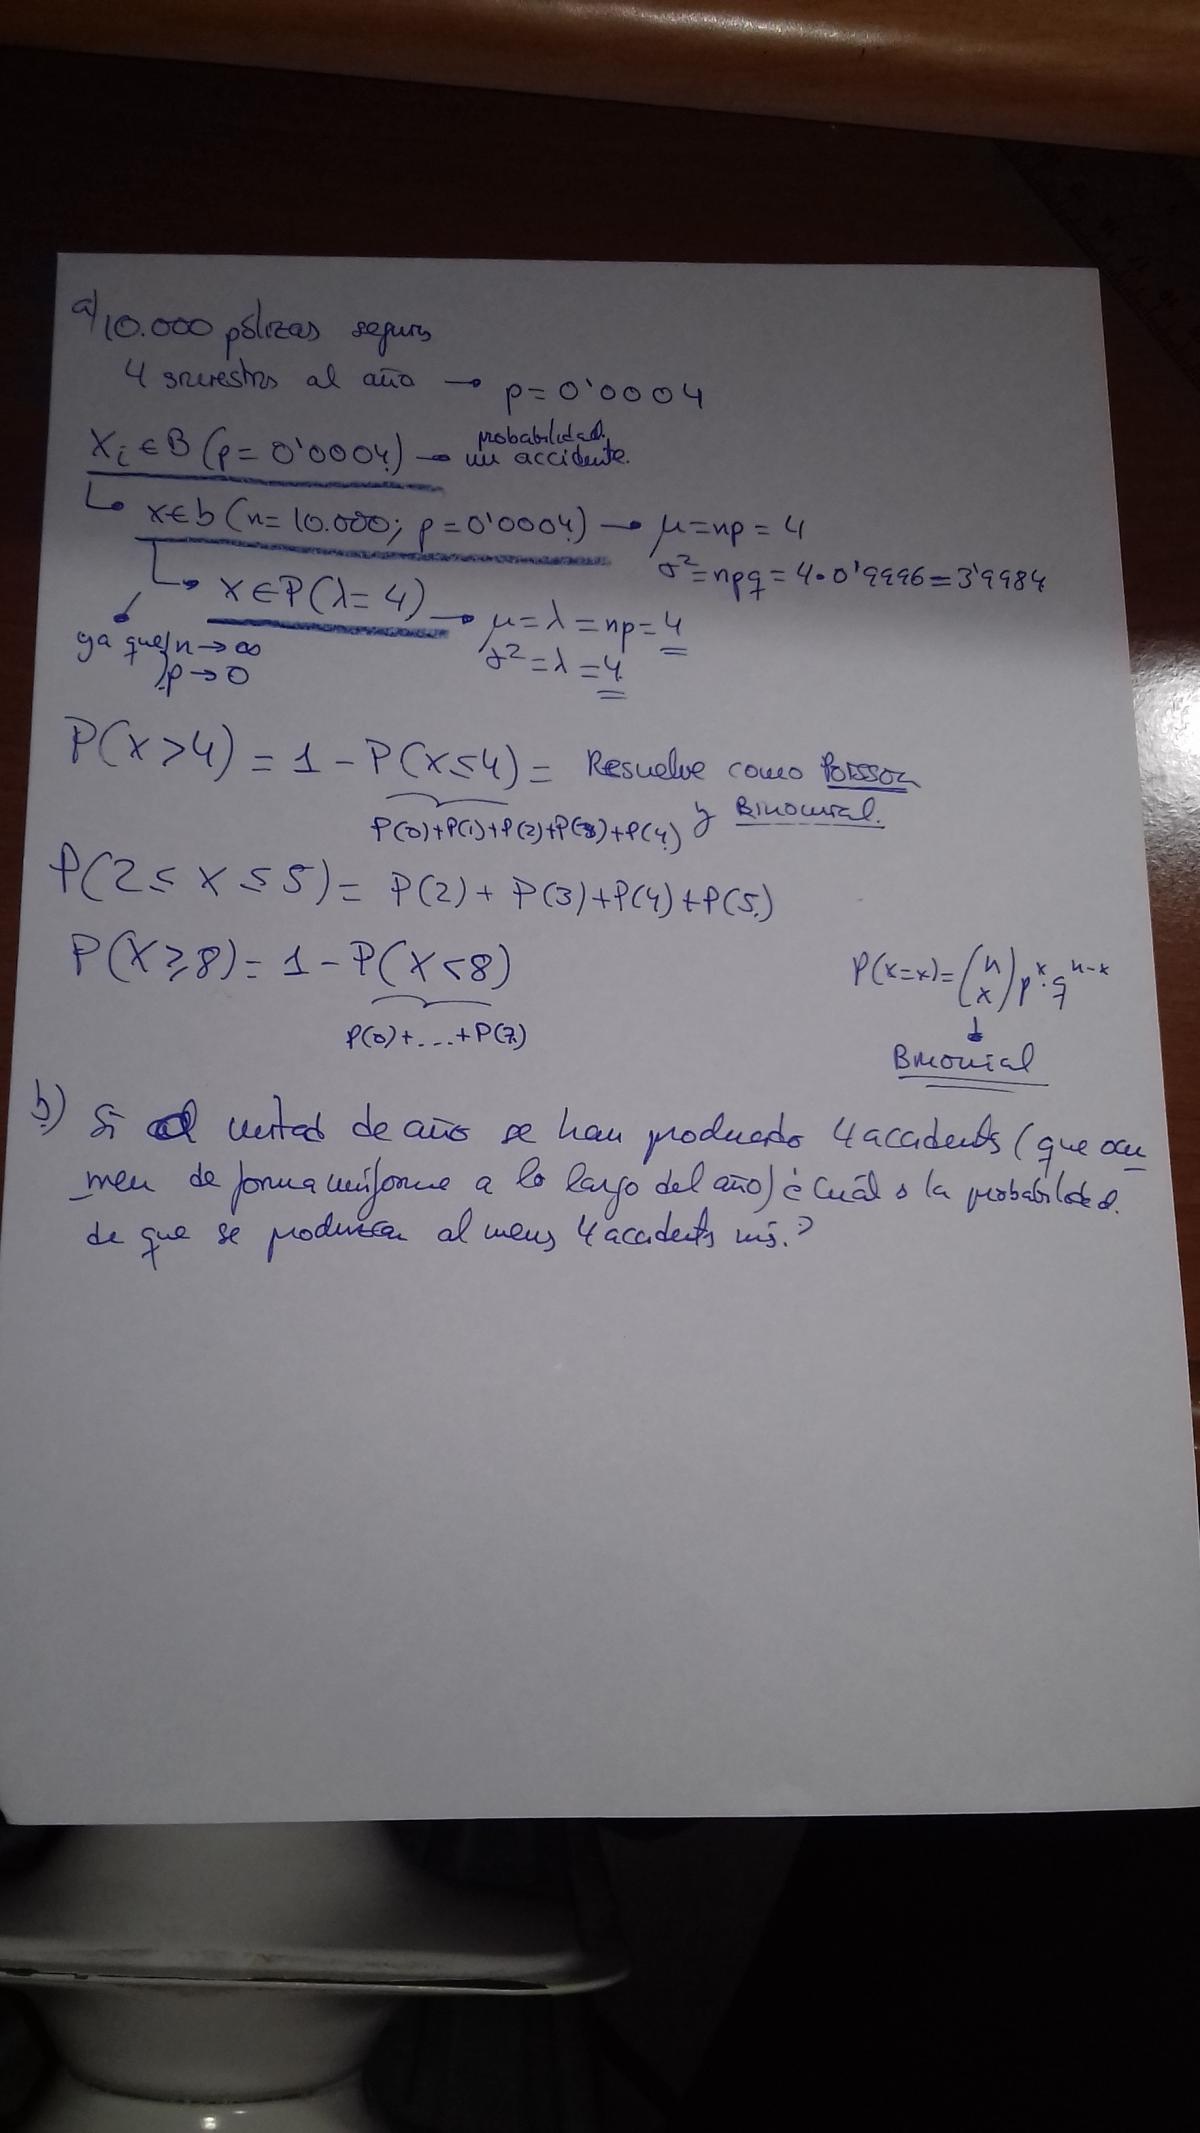 a) 10.000 pólizas seguros
4 siniestros al año → p = 0'0004
Xi ∈ B (p = 0'0004) → probabilidad un accidente.
↳ x ∈ b (n = 10.000; p = 0'0004) → μ = np = 4
σ² = npq = 4·0'9996 = 3'9984
↳ x ∈ P(λ = 4) → μ = λ = np = 4
σ² = λ = 4
ya que n → ∞
p → 0
P(x > 4) = 1 - P(x ≤ 4) = Resuelve como Poisson
P(0)+P(1)+P(2)+P(3)+P(4) y Binomial.
P(2 ≤ x ≤ 5) = P(2) + P(3) + P(4) + P(5)
P(X ≥ 8) = 1 - P(X < 8)
P(0)+...+P(7)
P(x=x) = (n x) p^x · q^n-x
↓
Binomial
b) Si al mitad de año se han producido 4 accidents (que ocu
rren de forma uniforme a lo largo del año) ¿Cuál es la probabilidad
de que se produzcan al menos 4 accidents más?